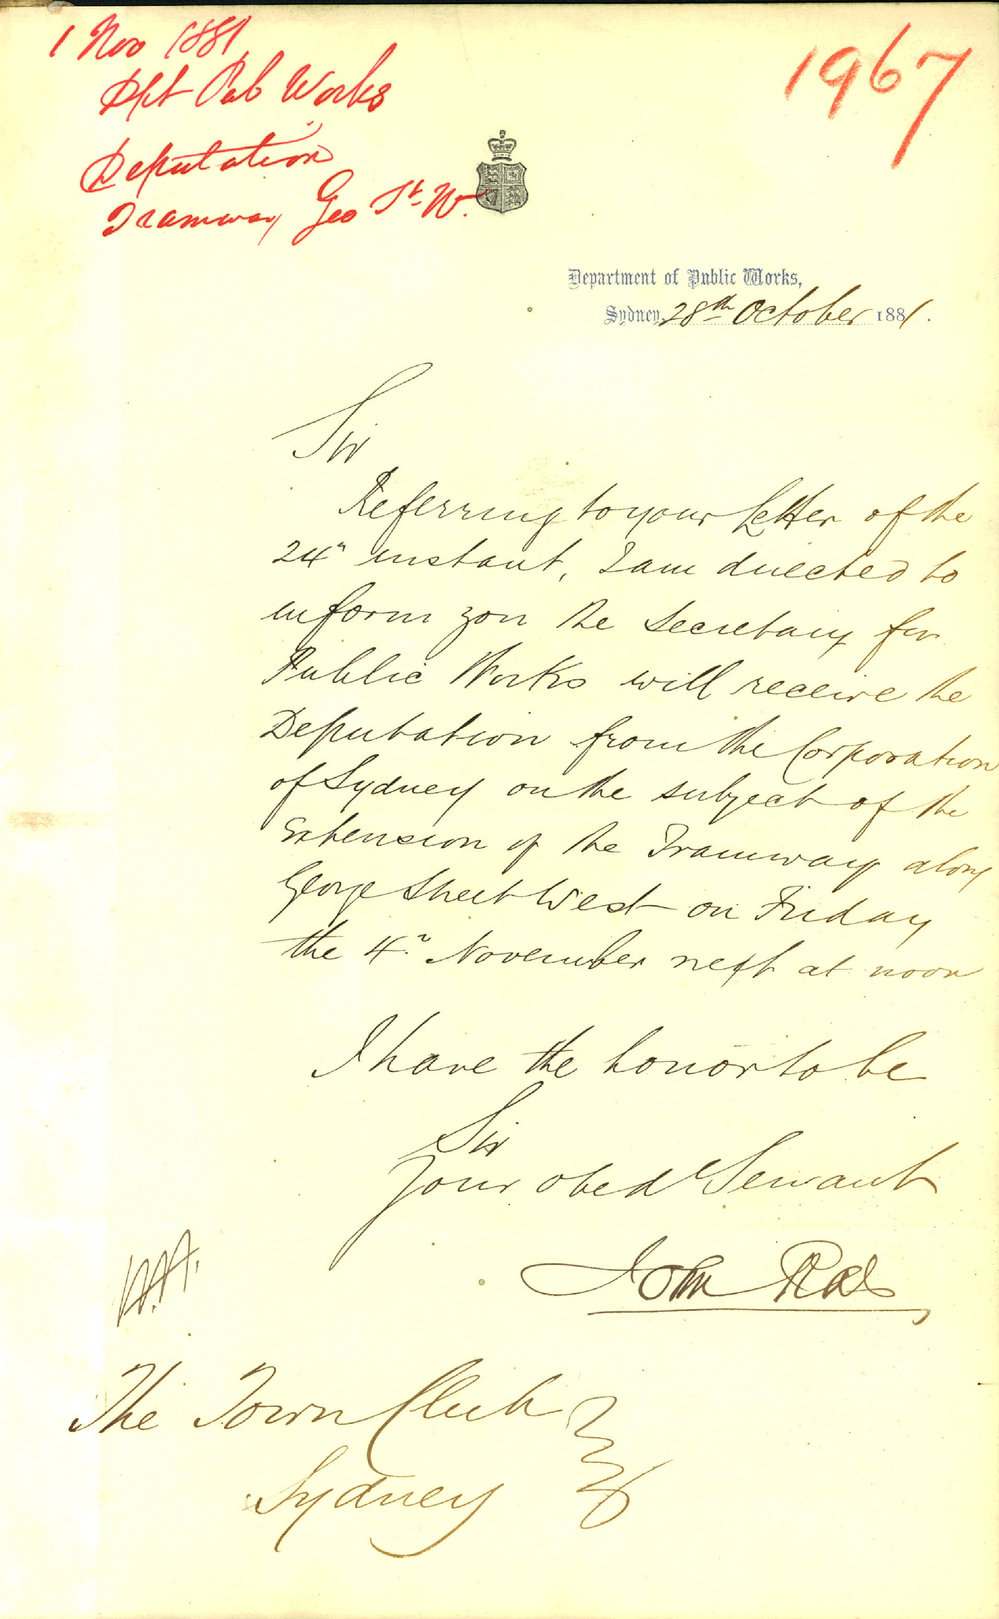 1 Nov 1881
Dpt Pub Works
Deputation
Tramway Geo St W.
1967
Department of Public Works,
Sydney, 28th October 1881.
Sir
Referring to your Letter of the
24th instant, I am directed to
inform you the Secretary for
Public Works will receive the
Deputation from the Corporation
of Sydney on the subject of the
Extension of the Tramway along
George Street West on Friday
the 4th November next at noon
I have the honor to be
Sir
Your obedt Servant
John Rae
The Town Clerk
Sydney